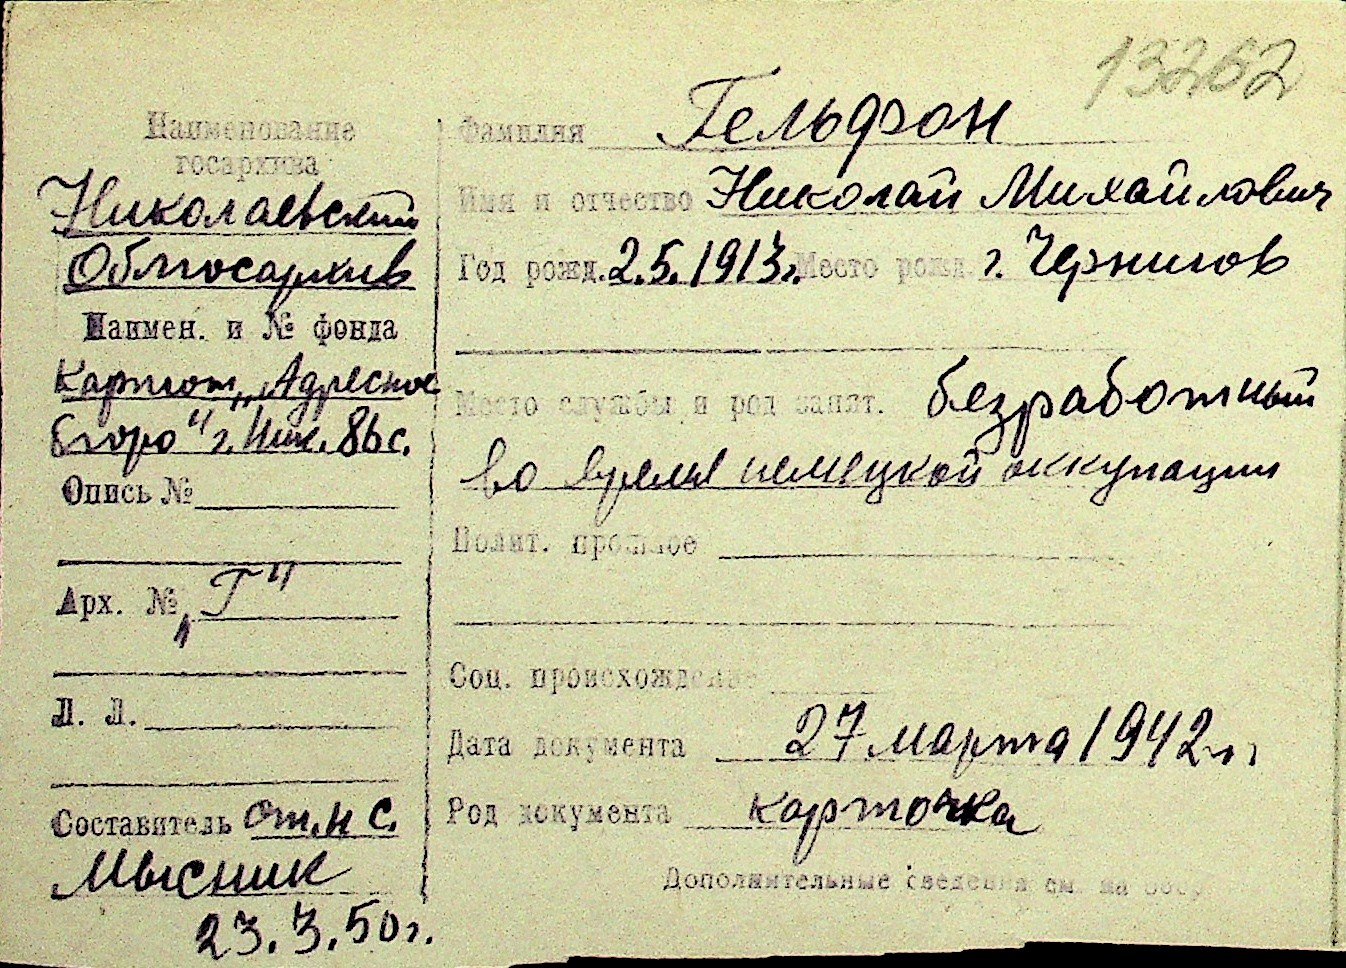 13262
Наименование
госархива
Николаевский
Облгосархив
Наимен. и № фонда
Картот. „Адресное
бюро" г. Ник. 86 с.
Опись №
Арх. № „Г"
Л. Л.
Составитель
Мысник
23.3.50г.
Фамилия Гельфон
Имя и отчество Николай Михайлович
Год рожд. 2.5.1913г. Место рожд. г. Чернигов
Место службы и род занят. безработный
во время немецкой оккупации
Полит. прошлое
Соц. происхождение
Дата документа 27 марта 1942 г.
Род документа карточка
Дополнительные сведения см. на обор.